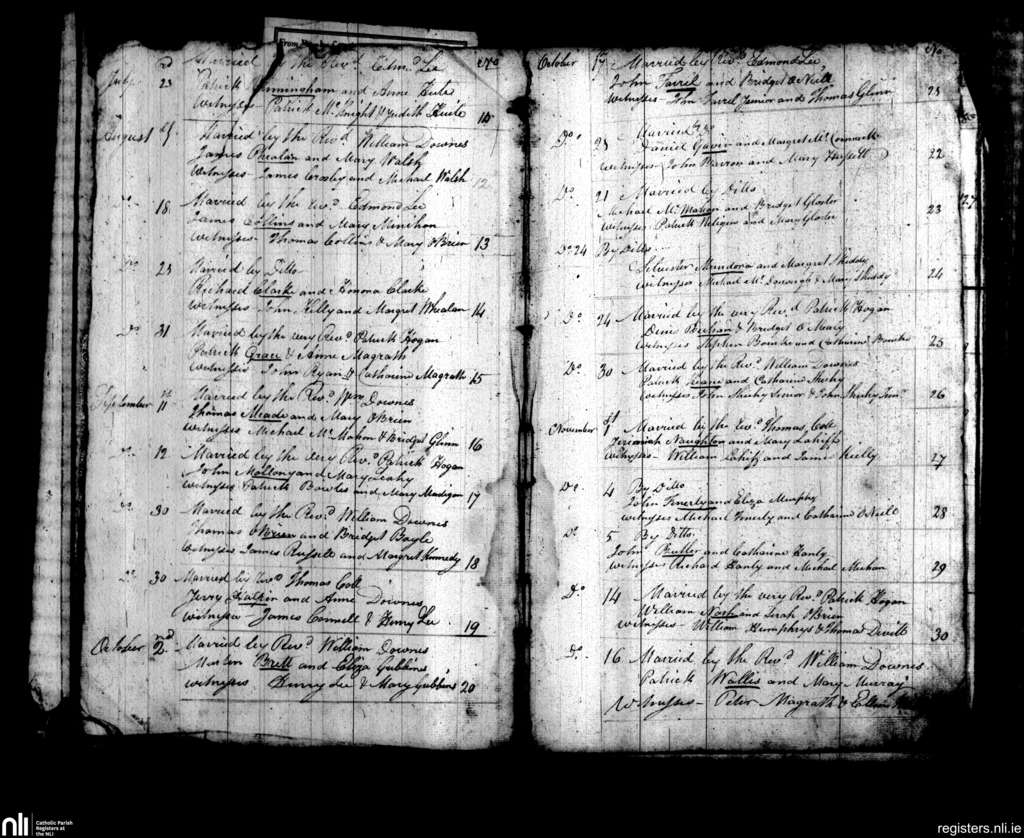 No.
Married by the Revd. Edmd. Lee
July 23 Patrick and Anne
Witnesses Patrick McKnight & Judith 10
August 7 Married by the Revd. William Downes
James Phealan and Mary Walsh
Witnesses James Crosby and Michael Walsh 12
18 Married by the Revd. Edmond Lee
James Collins and Mary Minihan
Witnesses Thomas Collins & Mary OBrien 13
Do. 23 Married by Ditto
Richard Clarke and Honora Clarke
Witnesses John Kelly and Margret Whealan 14
Do. 31 Married by the very Revd. Patrick Hogan
Patrick Grace & Anne Magrath
Witnesses John Ryan & Catharine Magrath 15
September 11 Married by the Revd. Wm. Downes
Thomas Meade and Mary OBrien
Witnesses Michael McMahon & Bridget Glinn 16
Do. 12 Married by the very Revd. Patrick Hogan
John Mollony and Mary Leahy
Witnesses Patrick Bowles and Mary Madigan 17
Do. 30 Married by the Revd. William Downes
Thomas OBrien and Bridget Boyle
Witnesses James Russell and Margret Kennedy 18
Do. 30 Married by Revd. Thomas Coll
Jerry and Anne Downes
Witnesses James Connell & Henry Lee 19
October 2d. Married by Revd. William Downes
Martin Brett and Eliza Gubbins
Witnesses Henry Lee & Mary Gubbins 20
No.
October 17 Married by Revd. Edmond Lee
John Farrel and Bridget O Neill
Witnesses John Farrel Junior and Thomas Glinn 21
Do. Married
Daniel Gavin and Margret
Witnesses John and Mary 22
Do 21 Married by Ditto
Michael McMahon and Bridget Gloster
Witnesses Patrick and Mary Gloster 23
Do 24 By Ditto
Silvester and Margret Skiddy
Witnesses Michael McDonough & Mary Skiddy 24
Do. 24 Married by the very Revd. Patrick Hogan
& Bridget O Meary
Witnesses Stephen Bourke and Catharine Bourke 25
Do. 30 Married by the Revd. William Downes
Patrick and Catharine Sheehy
Witnesses John Sheehy Senior & John Sheehy Junr. 26
November 1st Married by the Revd. Thomas Coll
Jeremiah Naughton and Mary Lahiff
Witnesses William Lahiff and James Kielly 27
Do. 4 By Ditto
John Finerty and Eliza Murphy
Witnesses Michael Finerty and Catharine O Neill 28
Do. 5 By Ditto
John Butler and Catharine Hanly
Witnesses Richard Hanly and Michael Meehan 29
Do. 14 Married by the very Revd. Patrick Hogan
William and Sarah OBrien
Witnesses William Humphrys & Thomas Devitt 30
Do. 16 Married by the Revd. William Downes
Patrick Wallis and Mary Murray
Witnesses Peter Magrath & Ellen
nli
Catholic Parish
Registers at
the NLI
registers.nli.ie